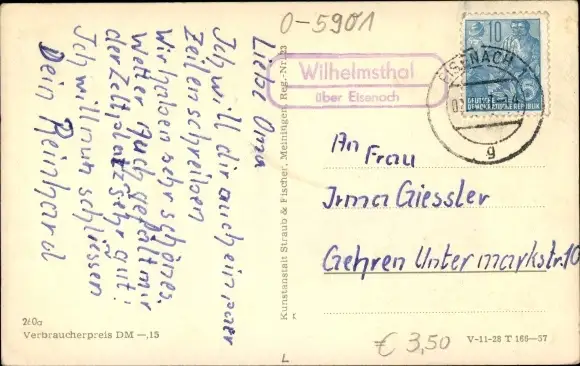 O-5901
Liebe Oma
Ich will dir auch ein paar
Zeilen schreiben
Wir haben sehr schönes
Wetter Auch gefällt mir
der Zeltplatz sehr gut!
Ich will nun schliessen
Dein Reinhard
260a
Verbraucherpreis DM —,15
Kunstanstalt Straub & Fischer, Meiningen, Reg.-Nr. 23
K
L
Wilhelmsthal
über Eisenach
EISENACH 1
g
10
DEUTSCHE
DEMOKRATISCHE REPUBLIK
An Frau
Irma Giessler
Gehren Untermarkstr. 10
€ 3,50
V-11-28 T 166—57